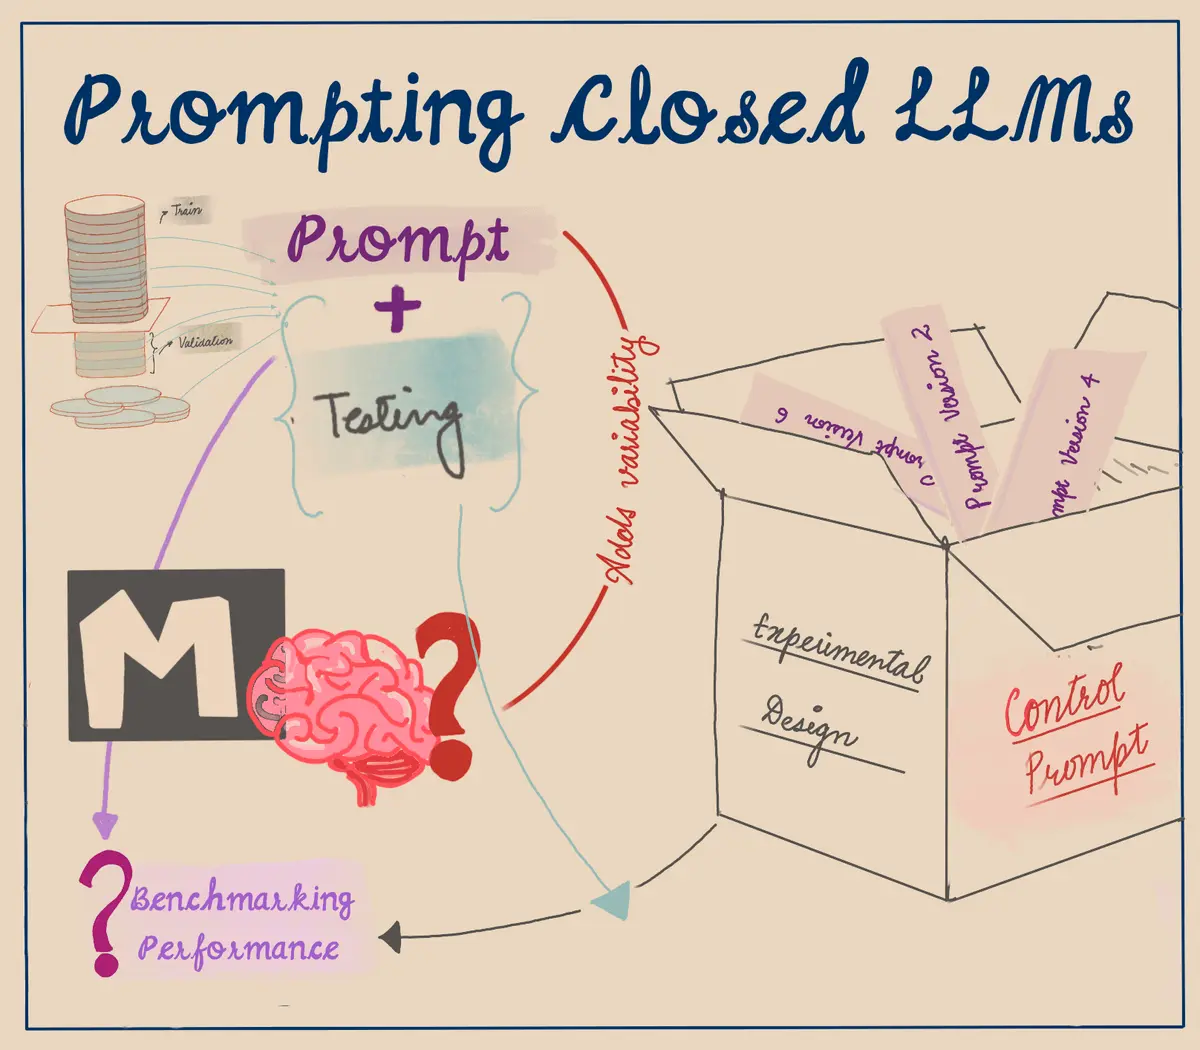 Prompting Closed LLMs
Train
Prompt
+
Validation
Testing
Adds variability
Prompt Version 6
Prompt Version 2
mpt Version 4
M
?
Experimental
Design
Control
Prompt
?
Benchmarking
Performance